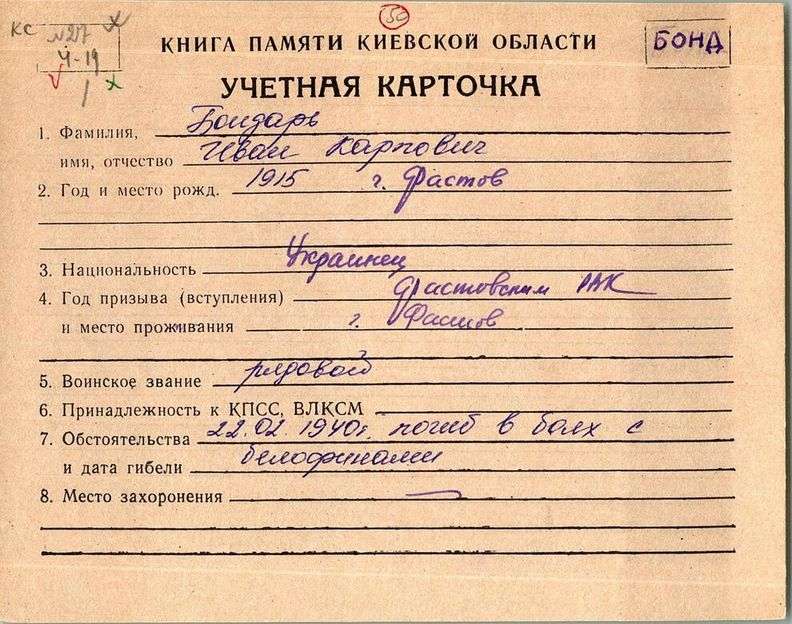 КС №217 х
50
Ч-19
1
КНИГА ПАМЯТИ КИЕВСКОЙ ОБЛАСТИ
БОНД
УЧЕТНАЯ КАРТОЧКА
1. Фамилия, Бондарь
имя, отчество Иван Карпович
2. Год и место рожд. 1915 г. Фастов
3. Национальность Украинец
4. Год призыва (вступления) Фастовским РВК
и место проживания г. Фастов
5. Воинское звание рядовой
6. Принадлежность к КПСС, ВЛКСМ
7. Обстоятельства 22.02.1940г. погиб в боях с
и дата гибели белофинами
8. Место захоронения —